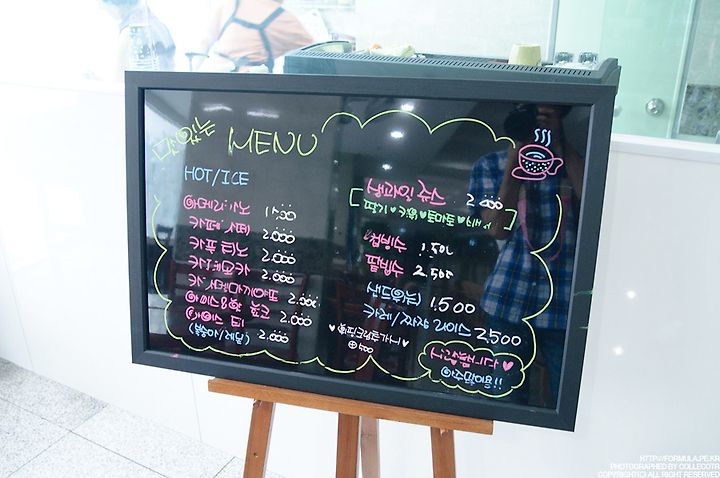 맛있는 MENU
HOT/ICE
아메리카노 1500
카페라떼 2.000
카푸치노 2.000
카페모카 2.000
2.000
2.000
아이스티
(복숭아/레몬) 2.000
생과일 쥬스 2.000
딸기♥키위♥토마토♥
컵빙수 1.500
팥빙수 2.500
샌드위치 1.500
카레/짜장 라이스 2500
⊕500
사랑합니다 ♥
이용!!
HTTP://FORMULA.PE.KR
PHOTOGRAPHED BY COLLECOTR
COPYRIGHT(C) ALL RIGHT RESERVED